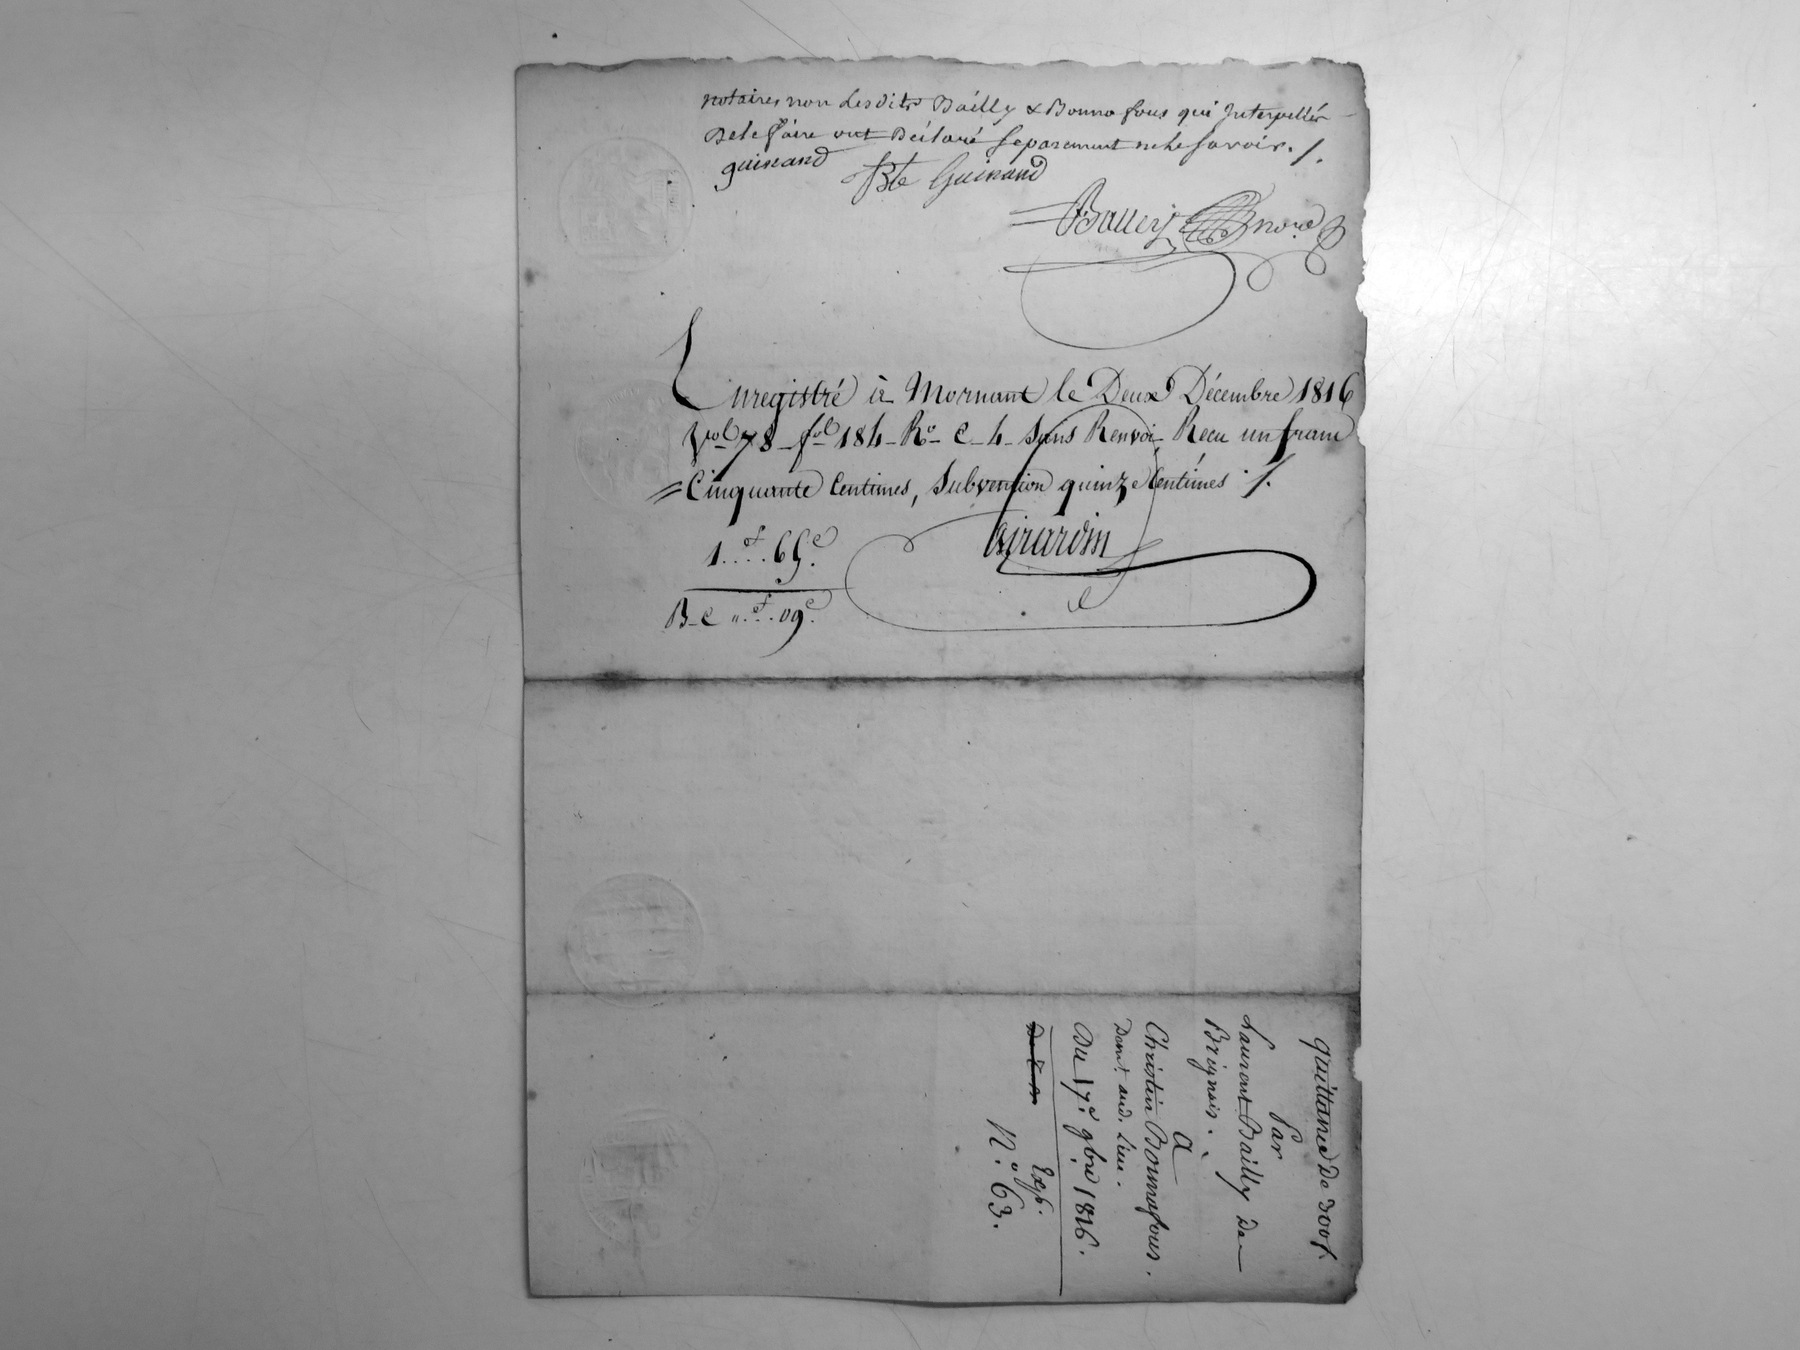 notaires non lesdits Bailly & Bonnafous qui Interpellés
De le faire ont Déclaré séparement ne le savoir. /.
guinand Bte Guinand
Enregistré à Mornant le Deux Décembre 1816
Vol 78 fol 184 Ro C 4 Sans Renvoi Recu un franc
Cinquante Centimes, Subvention quinze Centimes ./.
Girardin
1....f 65.c
B-C "..f..09.c
quittance De 300f
Par
Laurent Bailly De
Brignais.
A
Christin Bonnafous.
Demt aud. Lieu.
Du 17.e 9bre 1816.
Exp.
N.o 63.